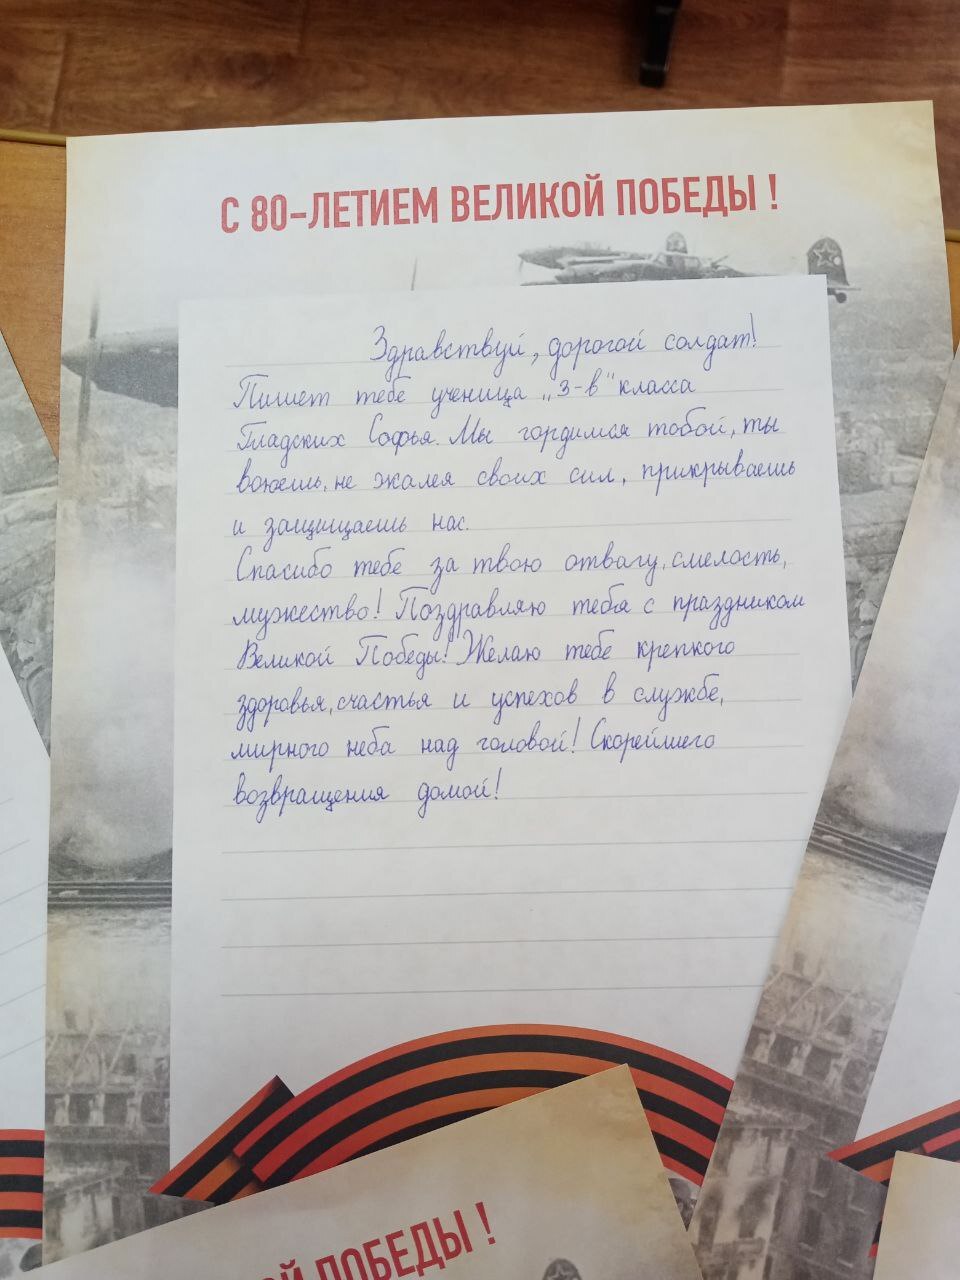 С 80-ЛЕТИЕМ ВЕЛИКОЙ ПОБЕДЫ !
Здравствуй, дорогой солдат!
Пишет тебе ученица „3-в" класса
Гладских Софья. Мы гордимся тобой, ты
воюешь, не жалея своих сил, прикрываешь
и защищаешь нас.
Спасибо тебе за твою отвагу, смелость,
мужество! Поздравляю тебя с праздником
Великой Победы! Желаю тебе крепкого
здоровья, счастья и успехов в службе,
мирного неба над головой! Скорейшего
возвращения домой!
ОЙ ПОБЕДЫ !